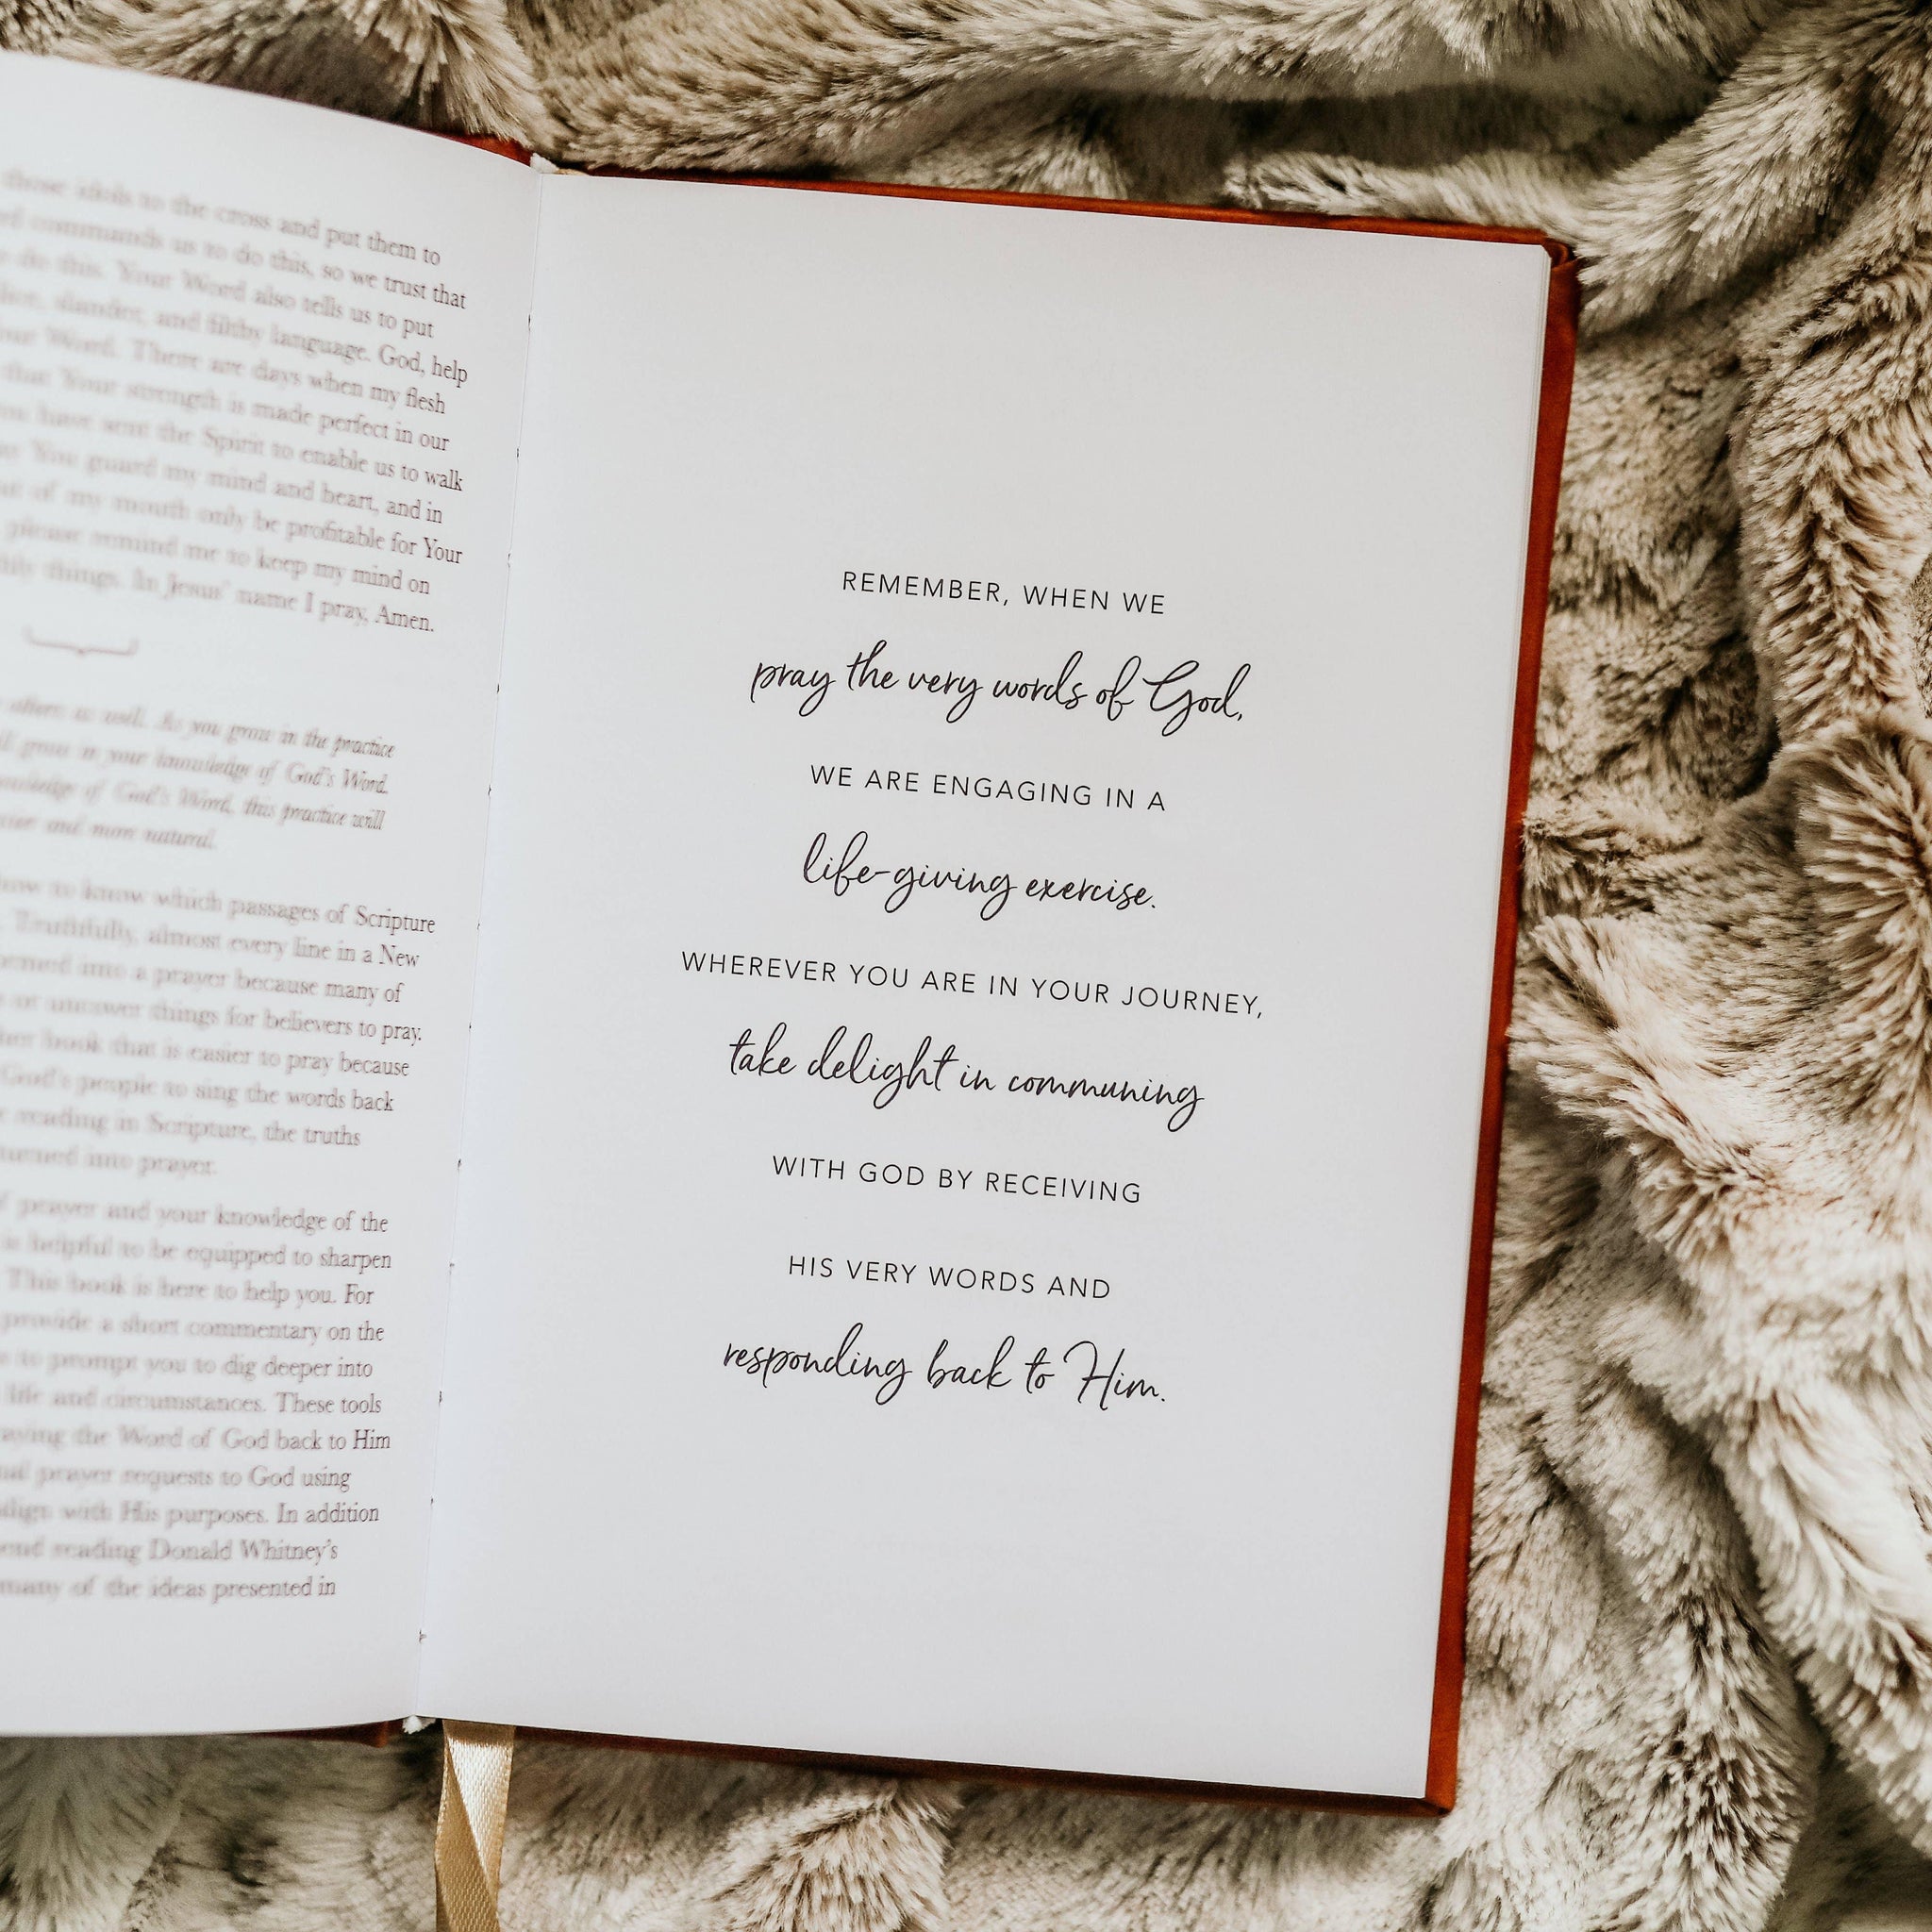 those idols to the cross and put them to
commands us to do this, so we trust that
do this. Your Word also tells us to put
slander, and filthy language. God, help
Word. There are days when my flesh
that Your strength is made perfect in our
have sent the Spirit to enable us to walk
You guard my mind and heart, and in
of my mouth only be profitable for Your
please remind me to keep my mind on
things. In Jesus' name I pray, Amen.
as well. As you grow in the practice
grow in your knowledge of God's Word.
of God's Word, this practice will
and more natural.
how to know which passages of Scripture
Truthfully, almost every line in a New
into a prayer because many of
or uncover things for believers to pray.
book that is easier to pray because
God's people to sing the words back
reading in Scripture, the truths
turned into prayer.
prayer and your knowledge of the
is helpful to be equipped to sharpen
This book is here to help you. For
provide a short commentary on the
to prompt you to dig deeper into
life and circumstances. These tools
the Word of God back to Him
prayer requests to God using
with His purposes. In addition
reading Donald Whitney's
many of the ideas presented in
REMEMBER, WHEN WE
pray the very words of God,
WE ARE ENGAGING IN A
life-giving exercise.
WHEREVER YOU ARE IN YOUR JOURNEY,
take delight in communing
WITH GOD BY RECEIVING
HIS VERY WORDS AND
responding back to Him.